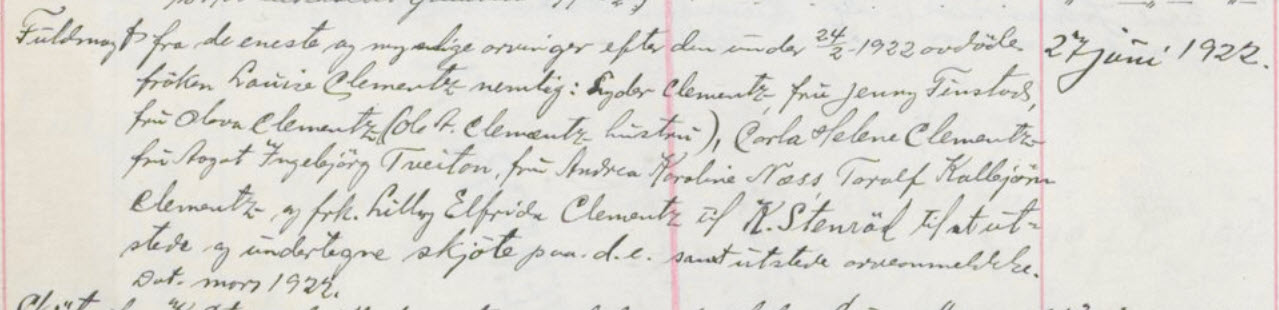 Fuldmagt fra de eneste og myndige arvinger efter den under 24/2-1922 avdöde 27 juni 1922.
fröken Louise Clementz nemlig: Lyder Clementz, fru Jenny Finstad,
fru Olava Clementz (Ole A. Clementz hustru), Carla Helene Clementz
fru Aagot Ingebjörg Tveiton, fru Andrea Karoline Næss, Toralf Kallbjörn
Clementz og frk. Lilly Elfrida Clementz til K. Stenröd til at ut-
stede og undertegne skjöte paa d.e. samt utstede
Dat. mars 1922.